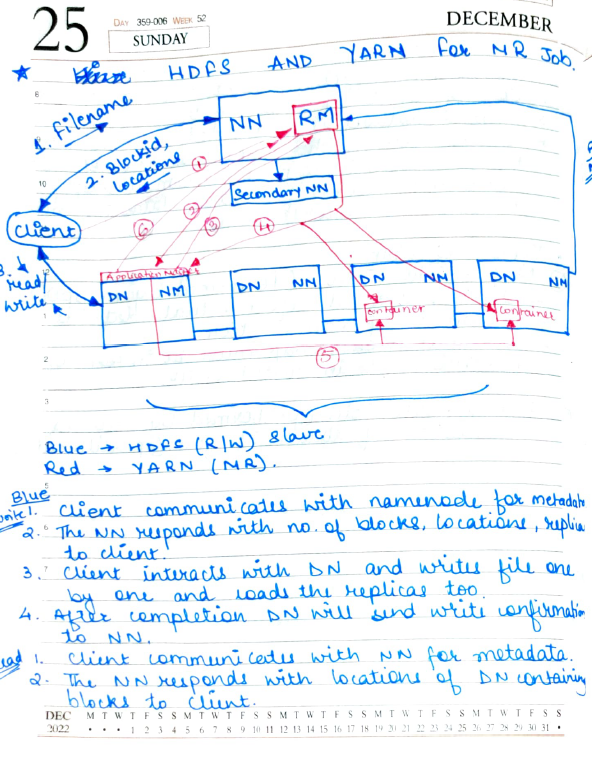 25
DAY 359-006 WEEK 52
SUNDAY
DECEMBER
HDFS AND YARN for MR Job.
8
1. Filename
NN
RM
2. Blockid,
locations
1
10
Secondary NN
Client
6
2
3
4
3. read/
write
Application Master
DN NM
DN NM
DN NM
DN NM
Container
Container
1
5
2
3
Blue → HDFS (R/W) Slave
Red → YARN (MR).
5
Blue
write 1. Client communicates with namenode for metadata
2. The NN responds with no. of blocks, locations, replica
to client.
3. Client interacts with DN and writes file one
by one and loads the replicas too.
4. After completion DN will send write confirmation
to NN.
read 1. Client communicates with NN for metadata.
2. The NN responds with locations of DN containing
blocks to client.
DEC M T W T F S S M T W T F S S M T W T F S S M T W T F S S M T W T F S S •
2022 • • • 1 2 3 4 5 6 7 8 9 10 11 12 13 14 15 16 17 18 19 20 21 22 23 24 25 26 27 28 29 30 31 • •